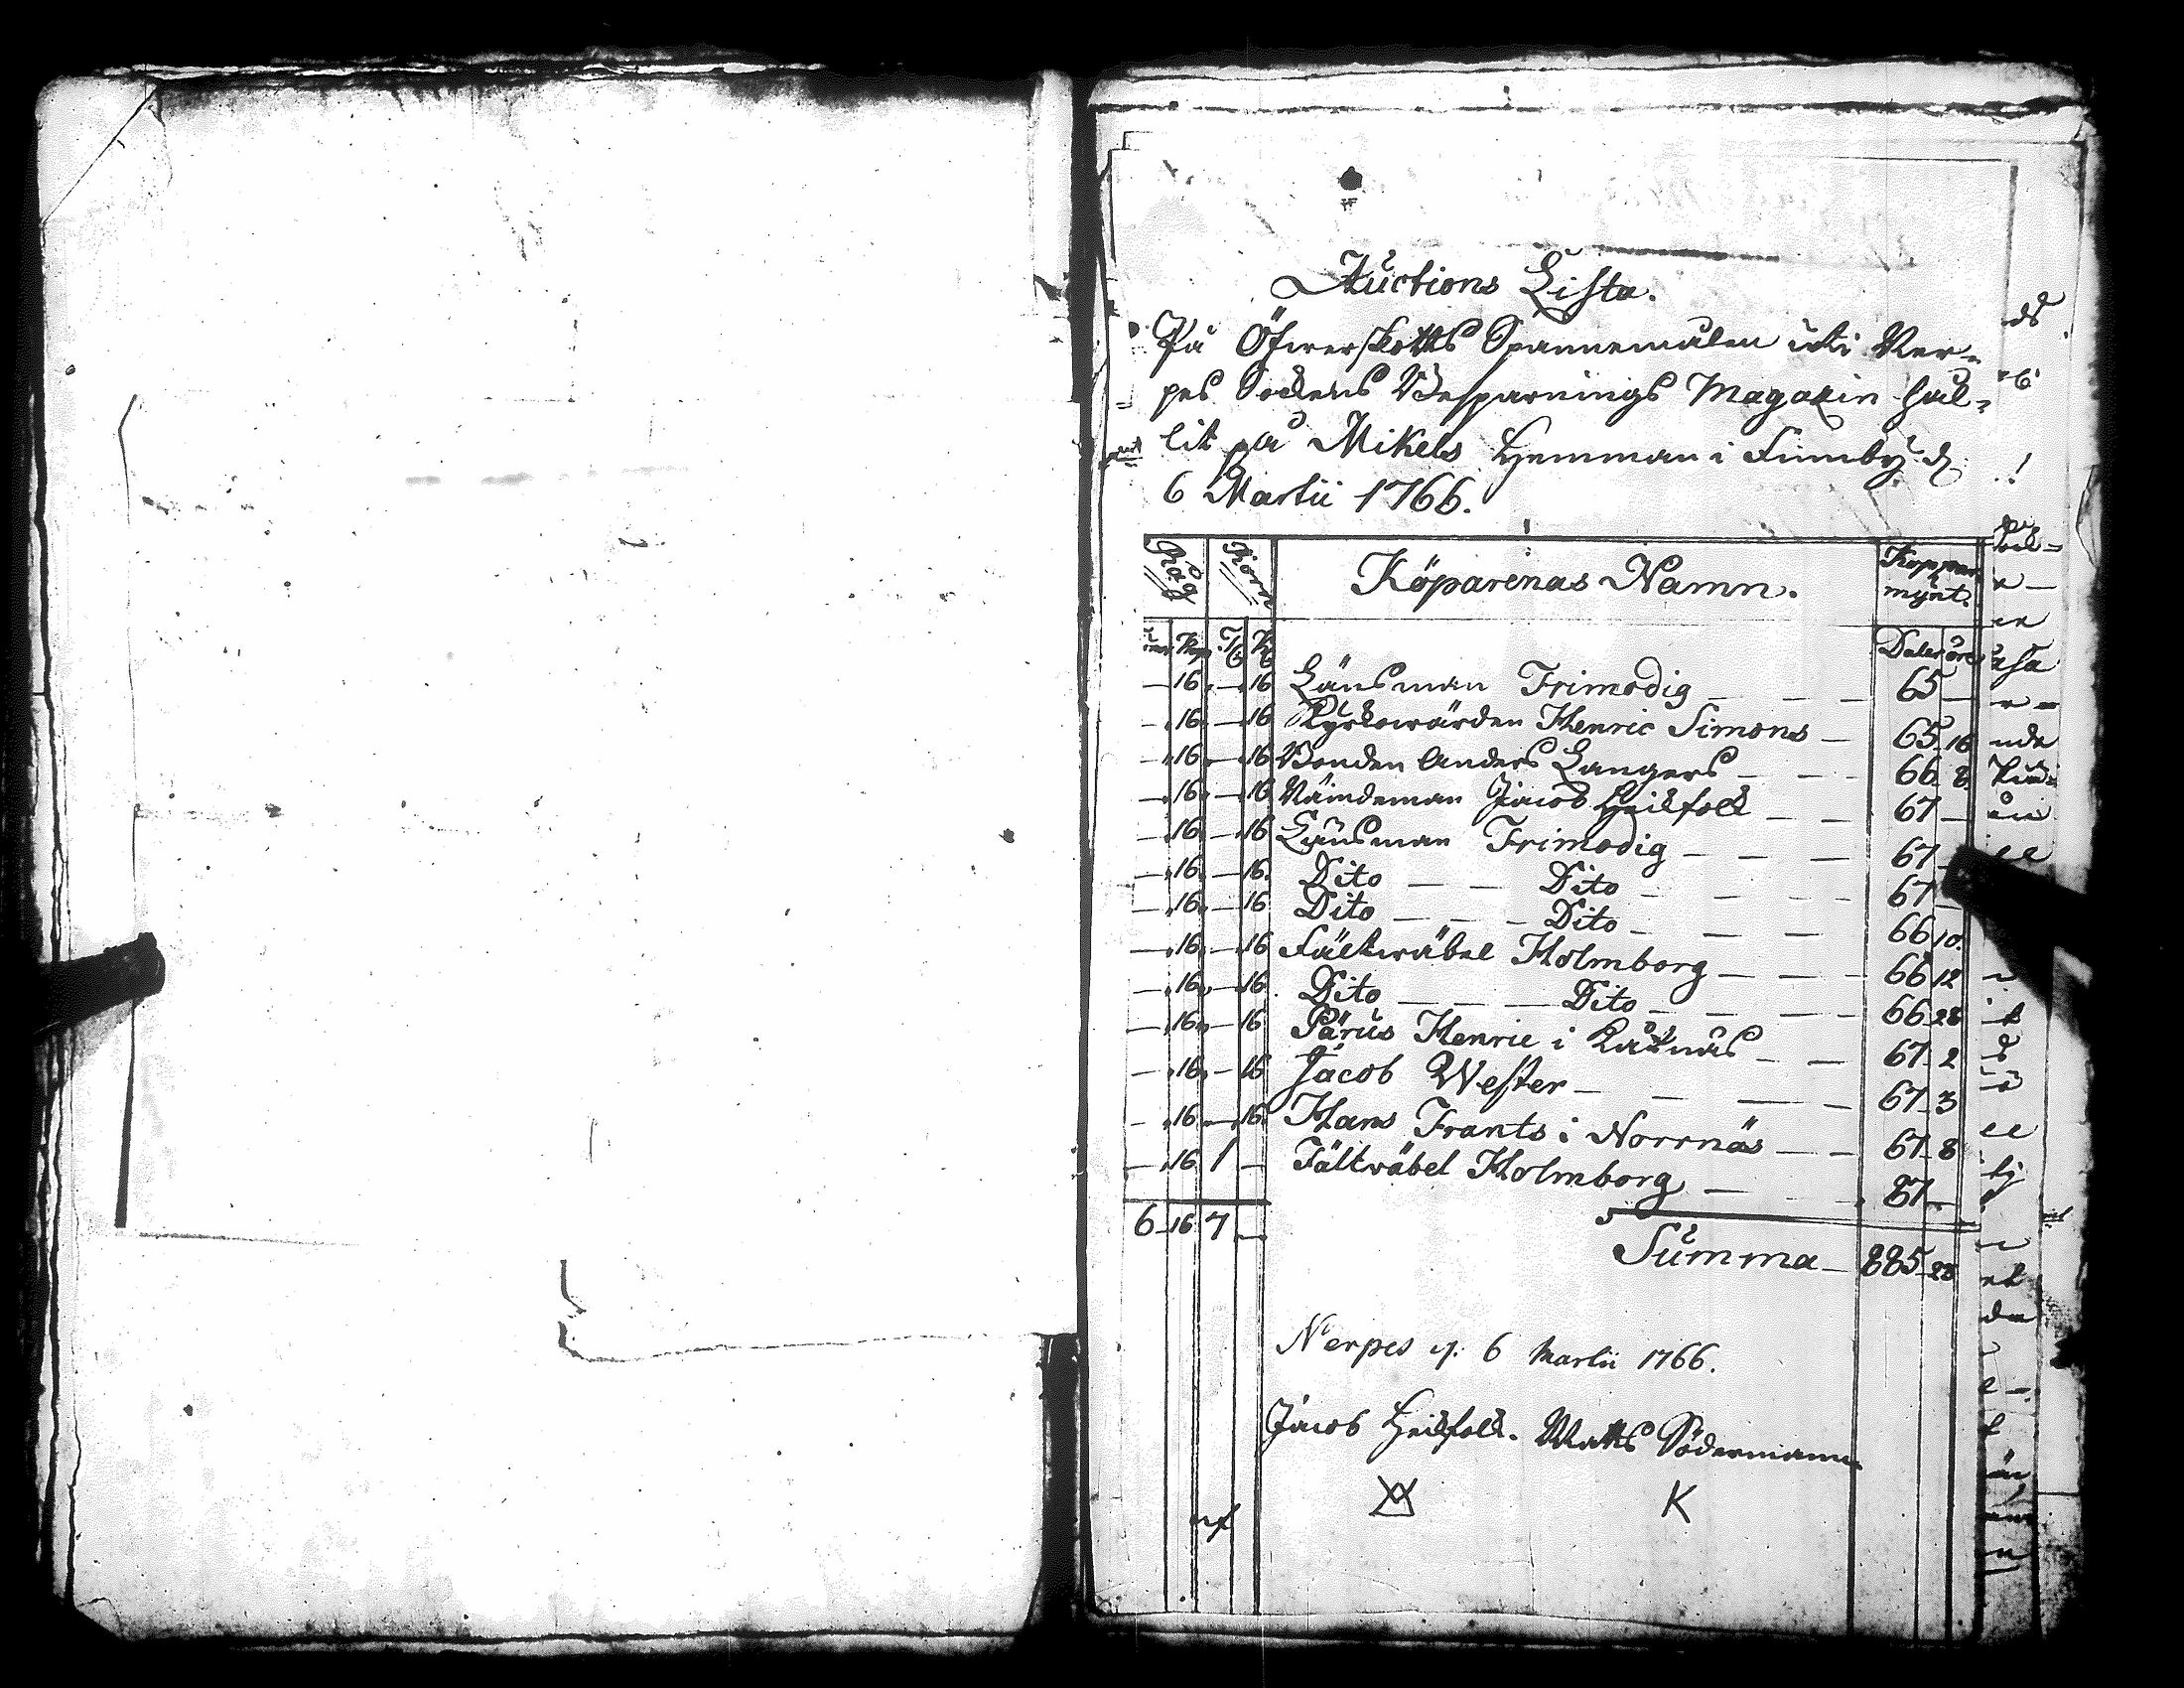 Auctions Lista.
På Öfwerskotts Spannemålen uti Ner-
pes Sockens Besparnings Magazin hål-
lit på Mikels Hemman i Finnby d.
6 Martii 1766.
Råg Korn Köparenas Namn. Koppar mynt.
Kapp. T. K. Daler öre
— 16 — 16 Länsman Frimodig — — — 65 —
— 16 — 16 Kyrkowärden Henric Simons — 65 16
— 16 — 16 Bonden Anders Langers — — — 66 8
— 16 — 16 Nämdeman Jacob Heikfolk — — 67 —
— 16 — 16 Länsman Frimodig — — — 67 —
— 16 — 16 Dito — — Dito — — — 67 —
— 16 — 16 Dito — — — Dito — — — 66 10
— 16 — 16 Fältwäbel Holmborg — — — 66 12
— 16 — 16 Dito — — — Dito — — — 66 28
— 16 — 16 Pärus Henric i Kaknäs — — 67 2
— 16 — 16 Jacob Wester — — — — 67 3
— 16 — 16 Hans Frants i Norrnäs — — 67 8
— 16 1 — Fältwäbel Holmborg — — 87 —
6 16 7 — Summa — 885 28
Nerpes d. 6 Martii 1766.
Jacob Heikfolk. Matts Södermann
K